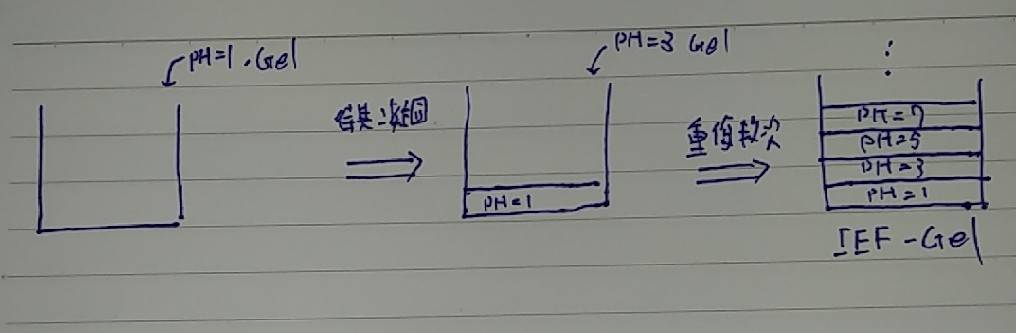 PH=1.Gel
待其凝固
PH=1
PH=3 Gel
重復數次
⋮
PH=7
PH=5
PH=3
PH=1
IEF-Gel